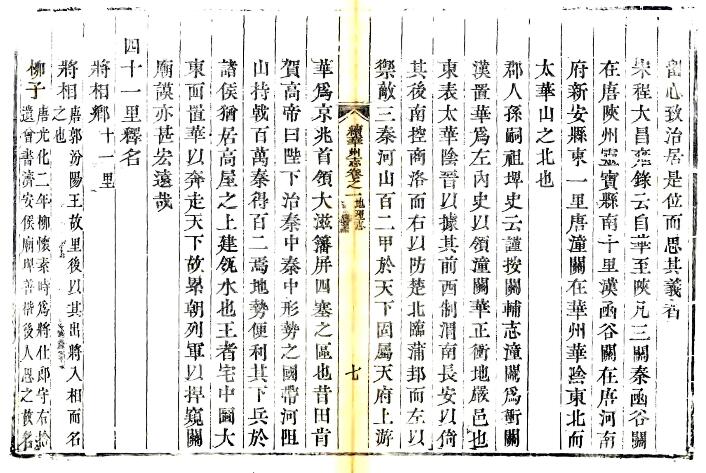 留心致治居是位而思其義者
宋程大昌雍錄云自華至陝凡三關秦函谷關
在唐陝州靈寶縣南十里漢函谷關在唐河南
府新安縣東一里唐潼關在華州華陰東北而
太華山之北也
郡人孫嗣祖埤史云謹按關輔志潼關為衝關
漢置華為左內史以領潼關華正衝地嚴邑也
東表太華陰晉以據其前西制渭南長安以倚
其後南控商洛而右以防楚北臨蒲邦而左以
禦敵三秦河山百二甲於天下固屬天府上游
續華州志卷之一
地理志
七
華為京兆首領大滋籓屏四塞之區也昔田肯
賀高帝曰陛下治秦中秦中形勢之國帶河阻
山持戟百萬秦得百二焉地勢便利其下兵於
諸侯猶居高屋之上建瓴水也王者宅中圖大
東西置華以奔走天下故累朝列軍以捍窺關
廟謨亦甚宏遠哉
四十一里釋名
將相鄉十一里
將相唐郭汾陽王故里後以其出將入相而名
之也
柳子唐光化二年柳懷素時為將仕郎守右拾
遺曾書濟安侯廟碑善楷後人思之故名